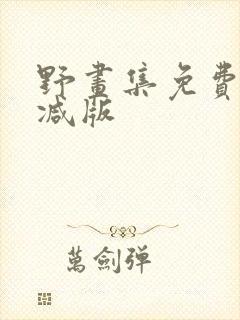 野畫集免費
减版
萬劍弹